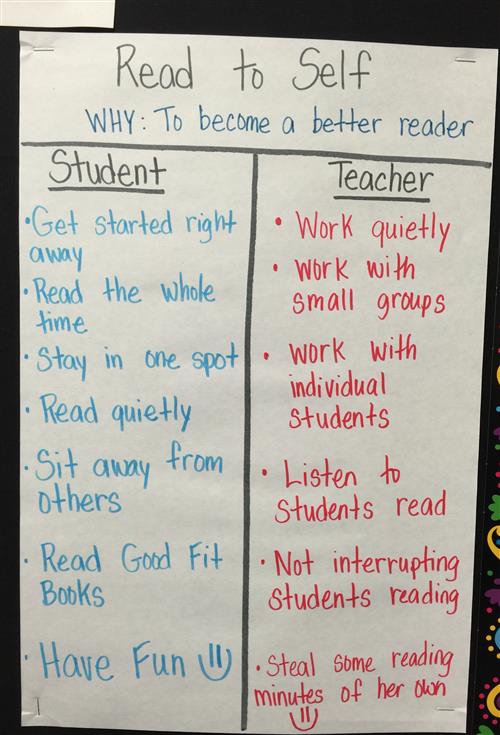 Read to Self
WHY: To become a better reader
Student
• Get started right
away
• Read the whole
time
• Stay in one spot
• Read quietly
• Sit away from
others
• Read Good Fit
Books
• Have Fun
Teacher
• Work quietly
• Work with
small groups
• Work with
individual
students
• Listen to
students read
• Not interrupting
students reading
• Steal some reading
minutes of her own